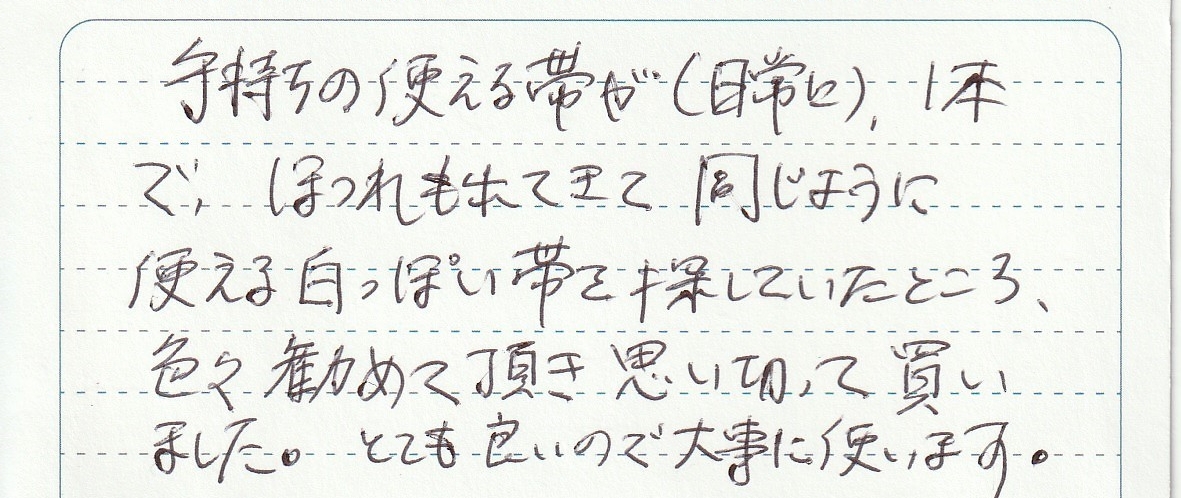 手持ちの使える帯が(日常に), 1本
で, ほつれも出てきて 同じように
使える白っぽい帯を探していたところ、
色々勧めて頂き思い切って買い
ました。とても良いので大事に使います。